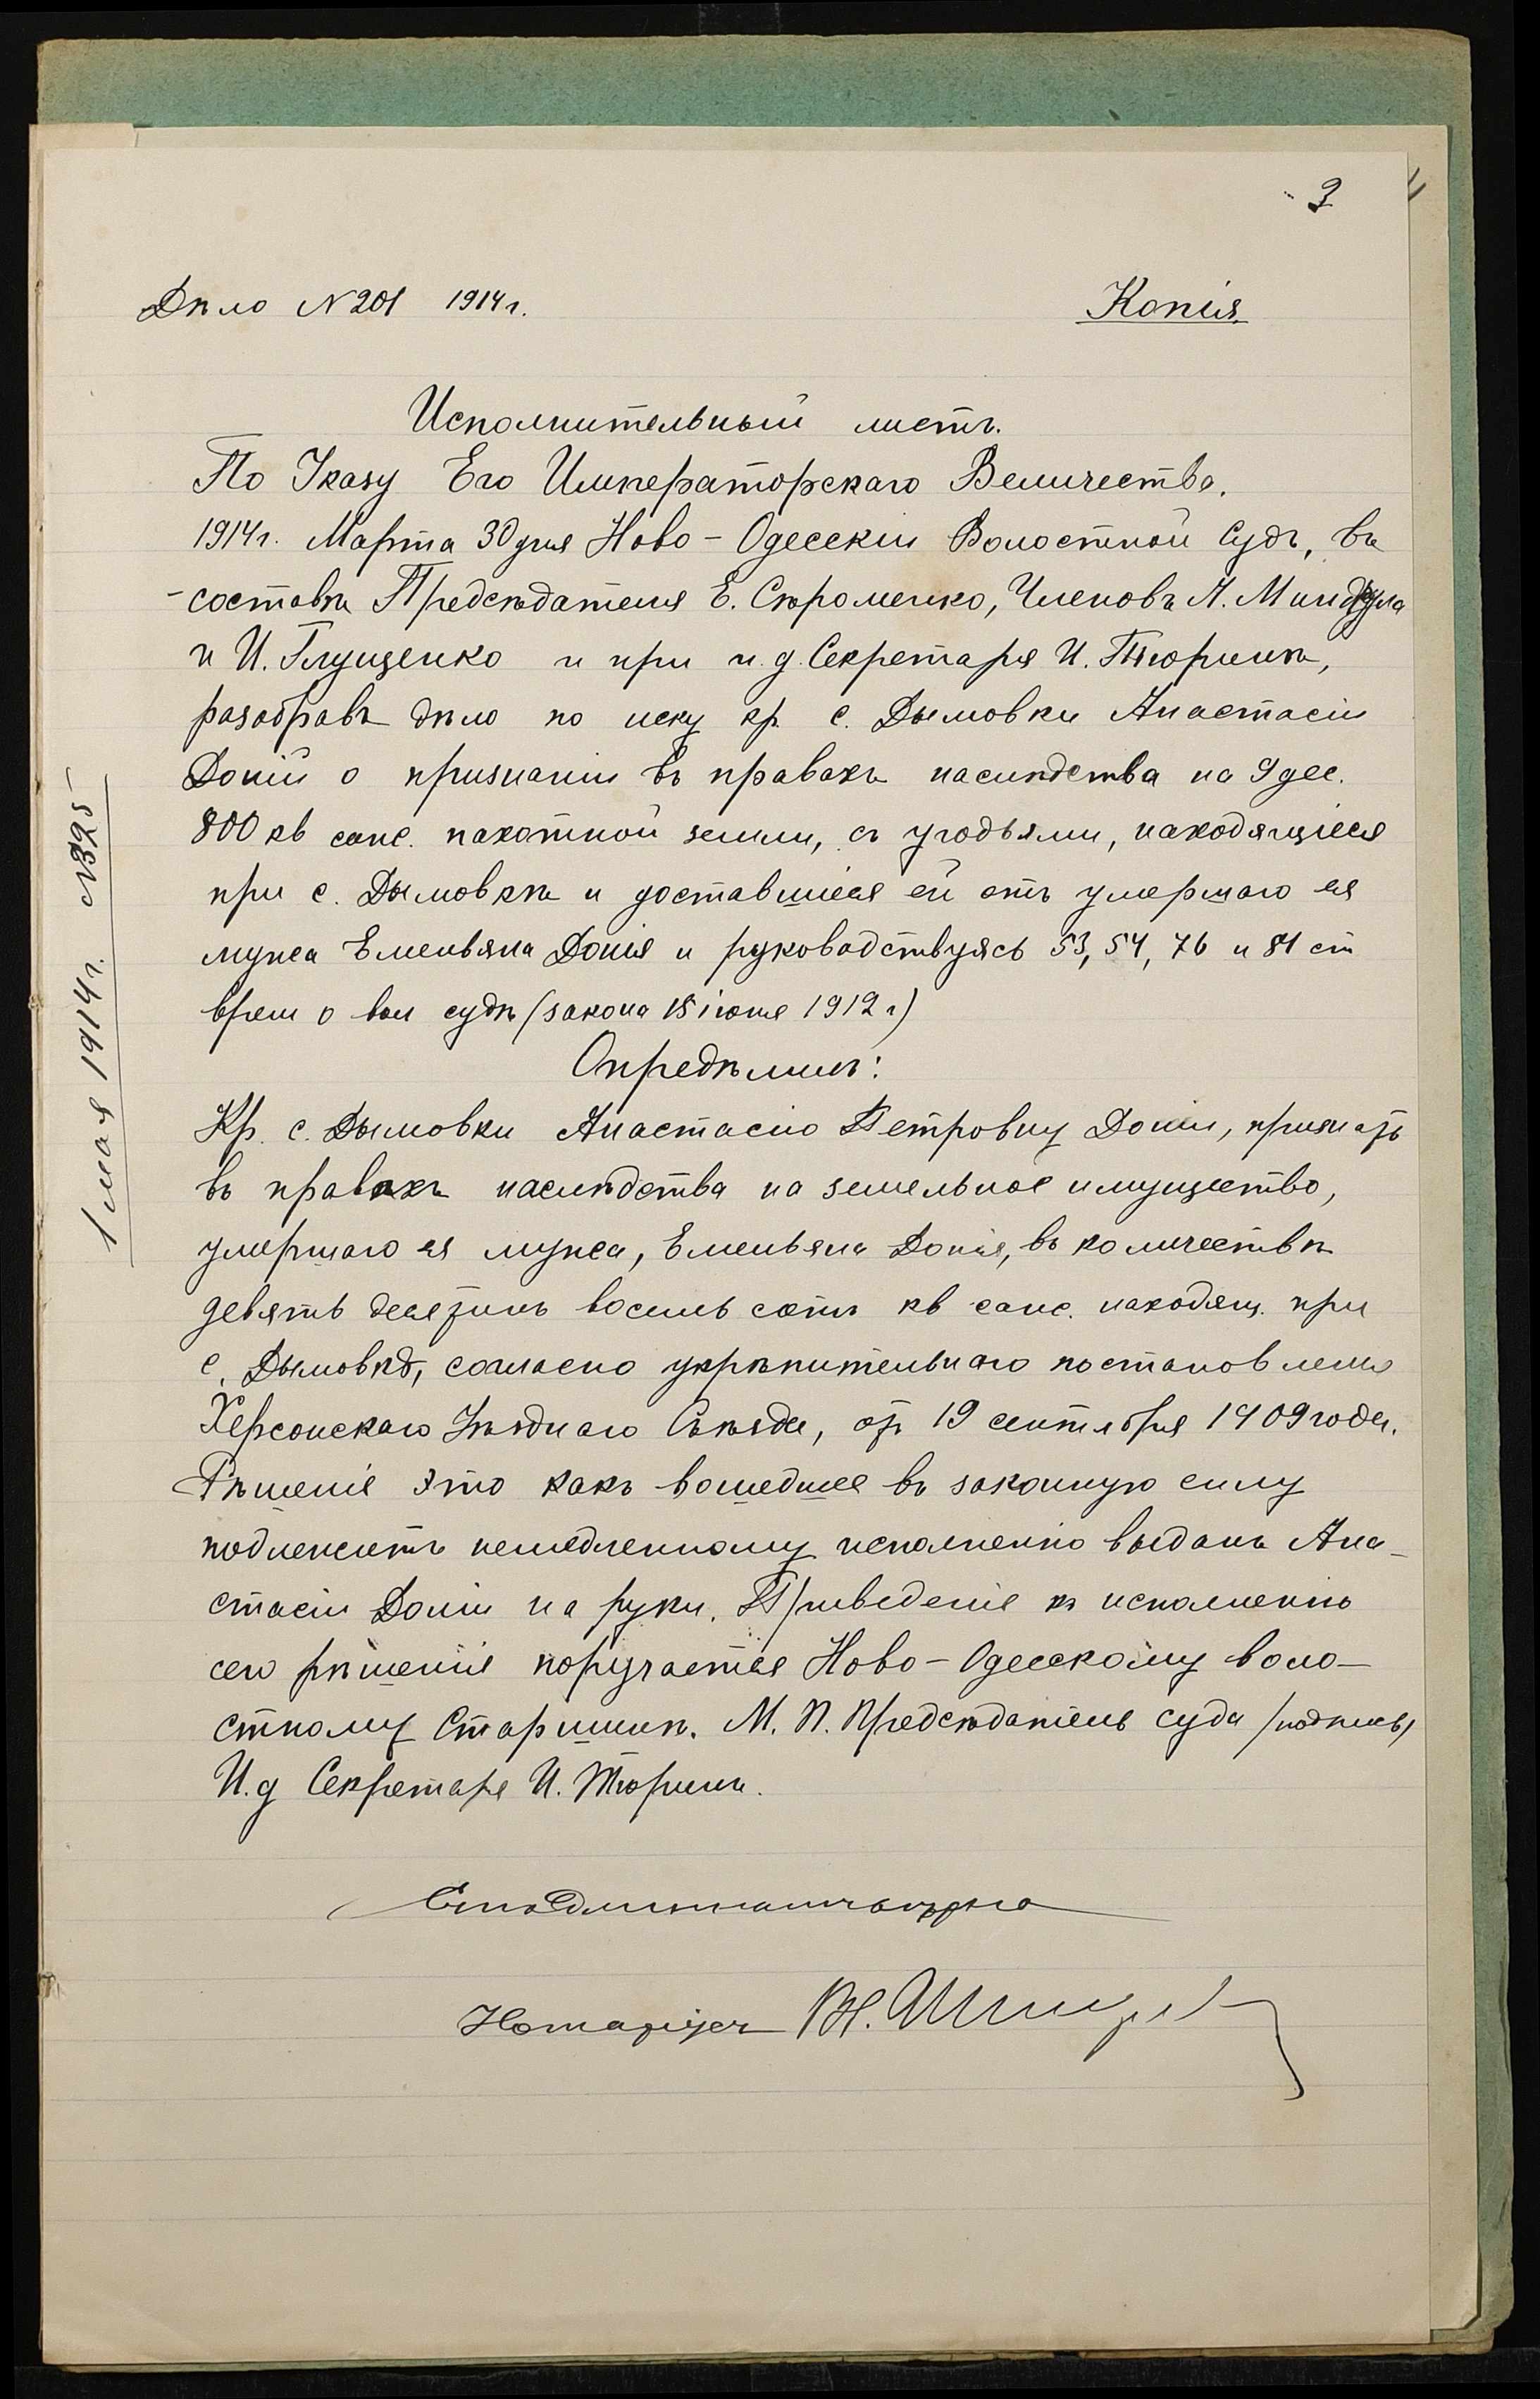 3
Дѣло N 201 1914 г.
Копія
Исполнительный листъ.
По Указу Его Императорскаго Величества.
1914 г. Марта 30 дня Ново-Одесскій Волостной Судъ, въ
составѣ Предсѣдателя Е. Сѣроменко, Членовъ А.
и И. Глущенко и при и.д. Секретаря И. Тюринѣ,
разобравъ дѣло по иску кр. с. Дымовки Анастасіи
Доній о признаніи въ правахъ наслѣдства на 9 дес.
800 кв саж. пахотной земли, съ угодьями, находящіеся
при с. Дымовкѣ и доставшіеся ей отъ умершаго ея
мужа Емельяна Донія и руководствуясь 53, 54, 76 и 81 ст
врем о вол судѣ (закона 15 іюня 1912 г)
Опредѣлилъ:
Кр. с. Дымовки Анастасію Петровну Доній, признать
въ правахъ наслѣдства на земельное имущество,
умершаго ея мужа, Емельяна Донія, въ количествѣ
девять десятинъ восемь сотъ кв саж. находящ. при
с. Дымовкѣ, согласно укрѣпительнаго постановленія
Херсонскаго Уѣзднаго Съѣзда, отъ 19 сентября 1909 года.
Рѣшеніе это какъ вошедшее въ законную силу
подлежитъ немедленному исполненію выданъ Ана-
стасіи Доній на руки. Приведеніе къ исполненію
сего рѣшенія поручается Ново-Одесскому воло-
стному Старшинѣ. М. П. Предсѣдатель суда /подпись/
И.д Секретаря И. Тюринъ.
Нотаріусъ
1 мая 1914 г. N 325